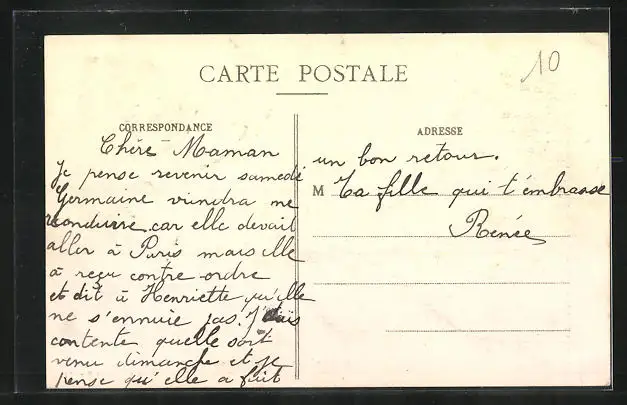 10
CARTE POSTALE
CORRESPONDANCE
Chère Maman
Je pense revenir samedi
Germaine viendra me
reconduire, car elle devait
aller à Paris mais elle
a reçu contre ordre
et dit à Henriette qu'elle
ne s'ennuie pas. J'étais
contente quelle soit
venu dimanche et je
pense qu'elle a fait
ADRESSE
un bon retour.
M Ta fille qui t'embrasse
Renée